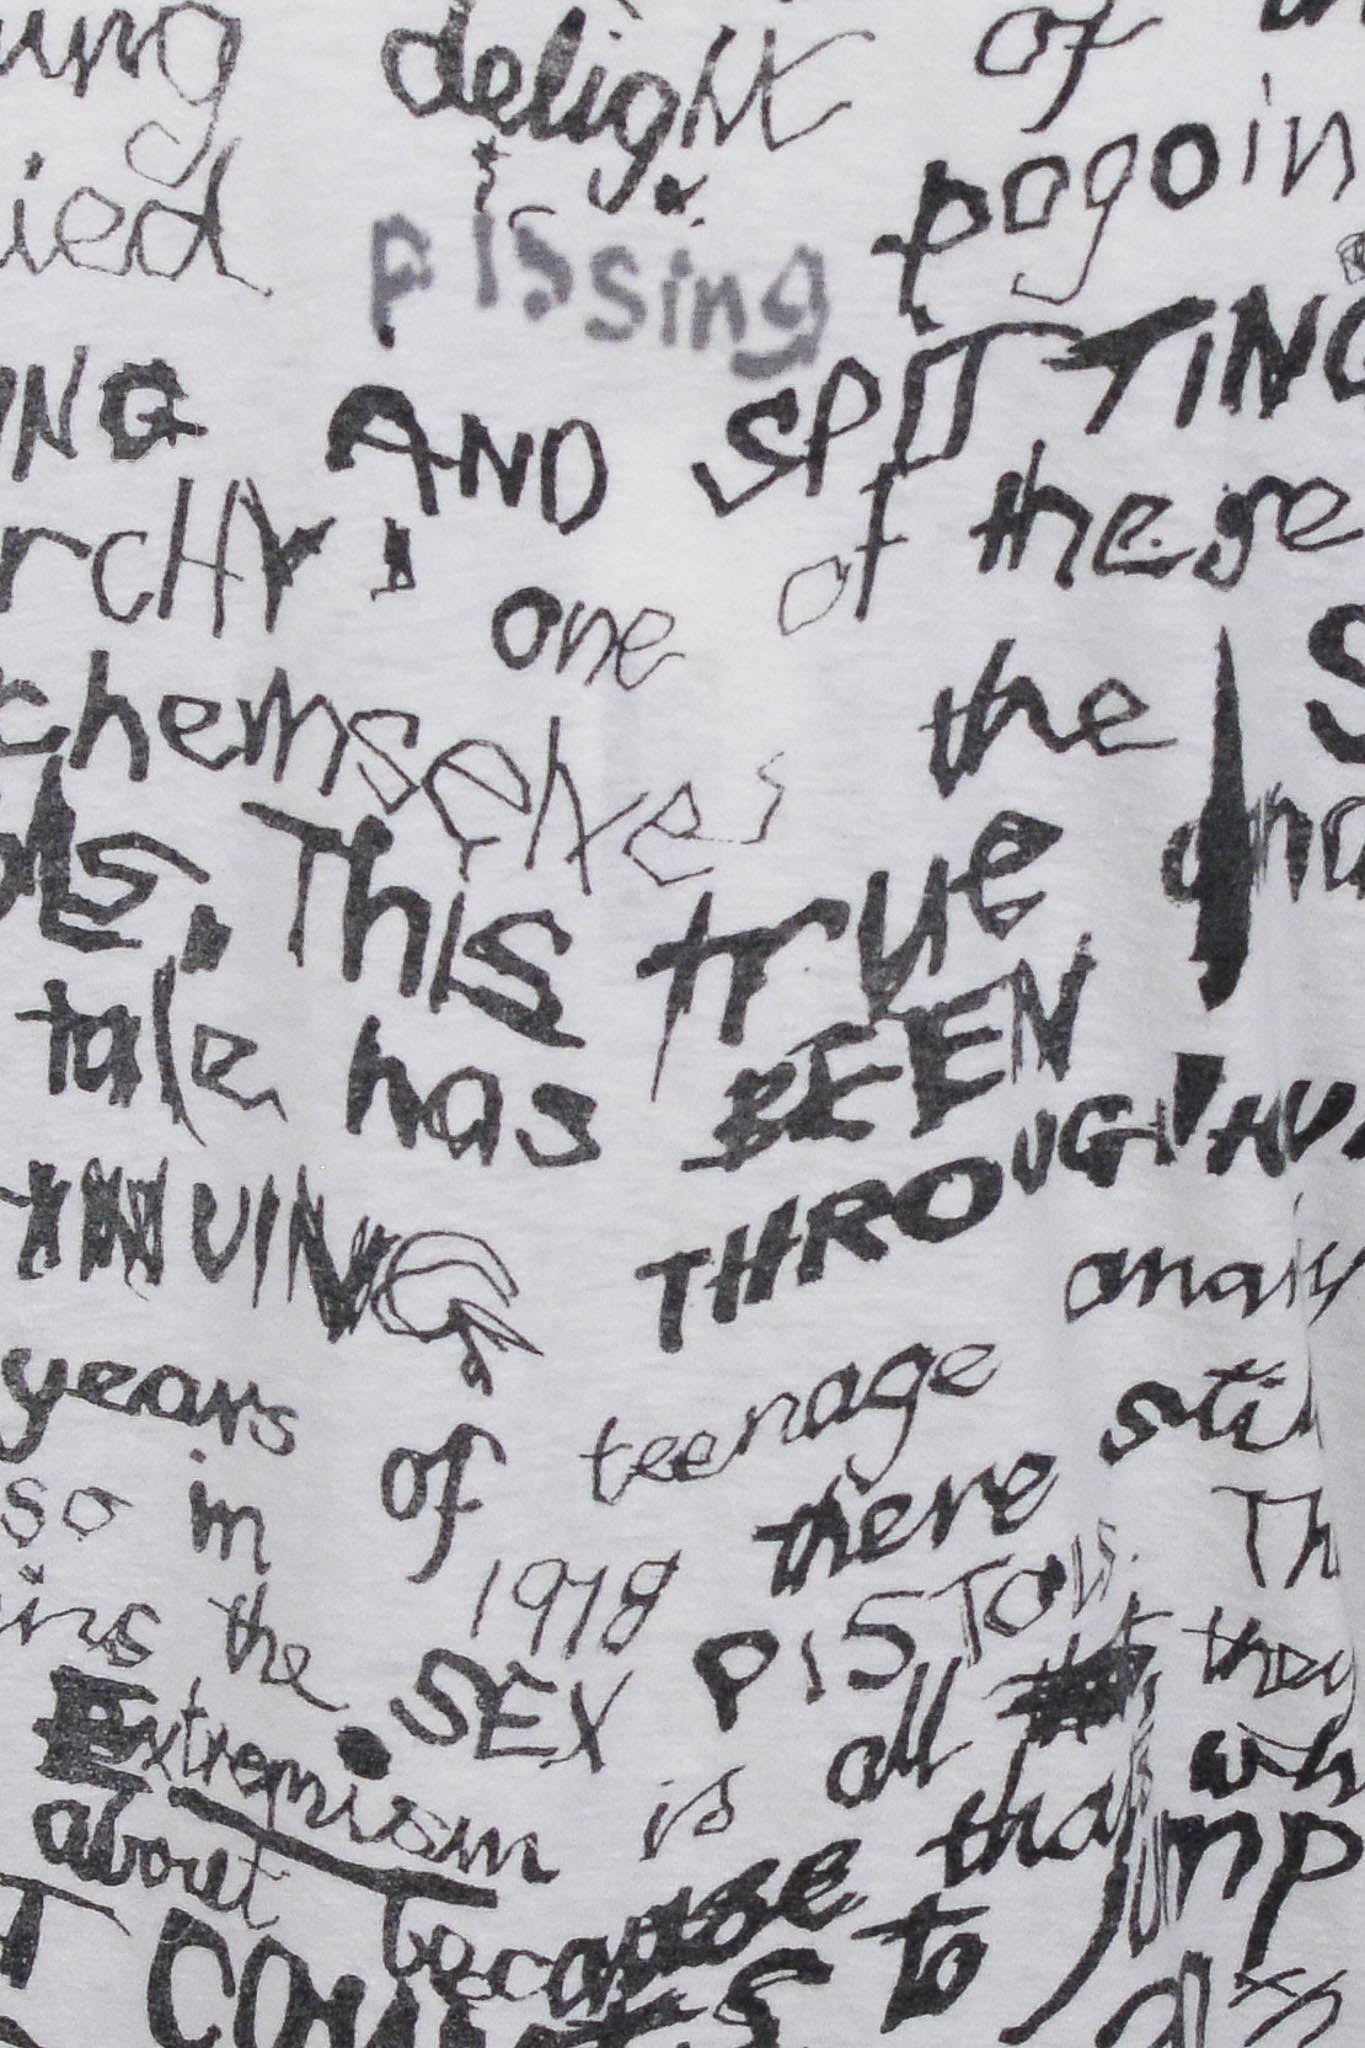 delight of
ied pissing pogoin
ING AND SPITTING
rcHY' one of these
chemselves the S
ols. This true and
tale has BEEN
TINUING THROUGH HU
years of teenage analy
so in 1978 there stil
ins the SEX PISTOLS. Th
Extremism is all they
about because that wh
T COMES to jump